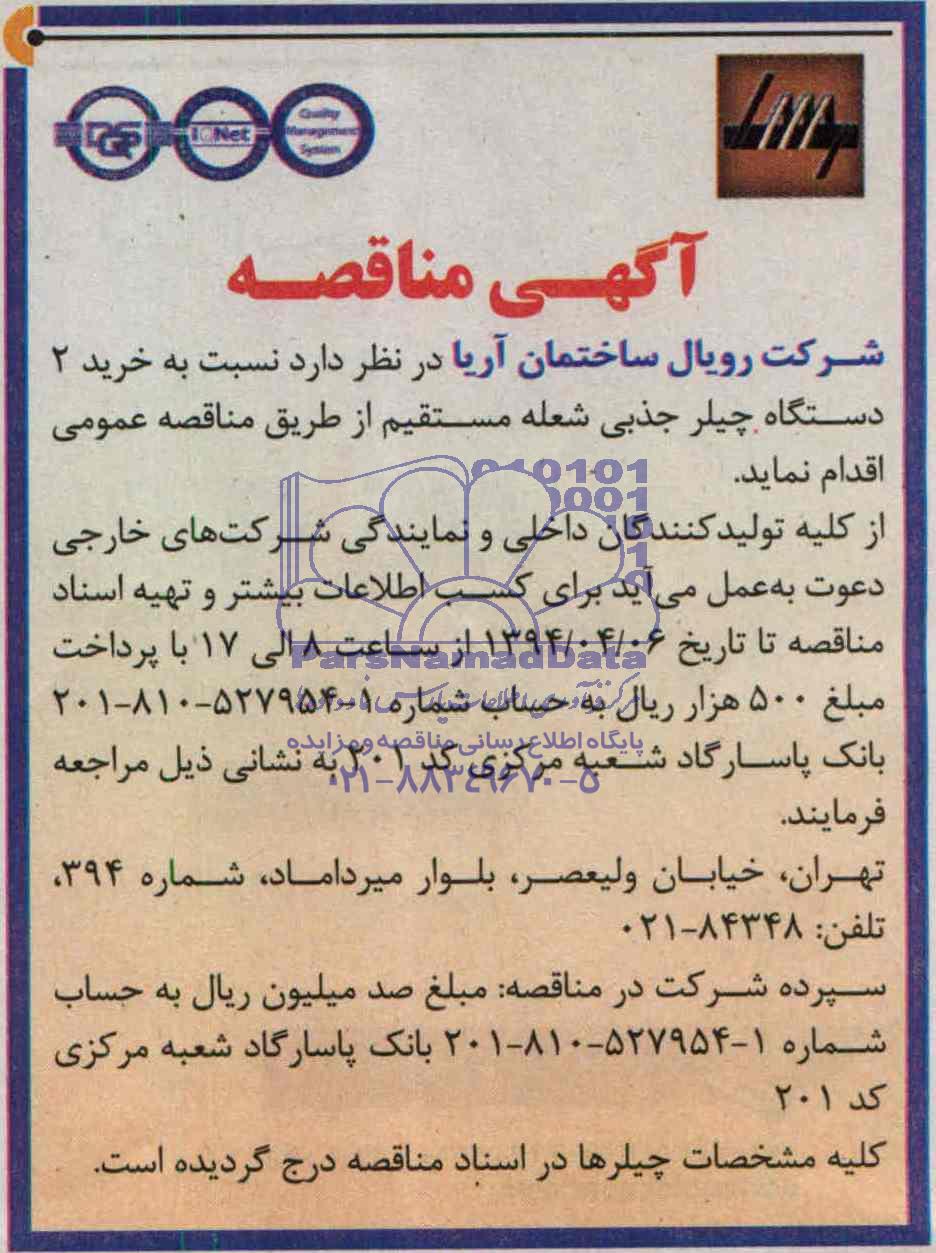 DQS
IQNet
Quality
Management
System
آگهی مناقصه
شرکت رویال ساختمان آریا در نظر دارد نسبت به خرید ۲
دستگاه چیلر جذبی شعله مستقیم از طریق مناقصه عمومی
اقدام نماید.
از کلیه تولیدکنندگان داخلی و نمایندگی شرکت‌های خارجی
دعوت به‌عمل می‌آید برای کسب اطلاعات بیشتر و تهیه اسناد
مناقصه تا تاریخ ۱۳۹۴/۰۴/۰۶ از ساعت ۸ الی ۱۷ با پرداخت
مبلغ ۵۰۰ هزار ریال به حساب شماره ۱-۵۲۷۹۵۴-۸۱۰-۲۰۱
بانک پاسارگاد شعبه مرکزی کد ۲۰۱ به نشانی ذیل مراجعه
فرمایند.
تهران، خیابان ولیعصر، بلوار میرداماد، شماره ۳۹۴،
تلفن: ۸۴۳۴۸-۰۲۱
سپرده شرکت در مناقصه: مبلغ صد میلیون ریال به حساب
شماره ۱-۵۲۷۹۵۴-۸۱۰-۲۰۱ بانک پاسارگاد شعبه مرکزی
کد ۲۰۱
کلیه مشخصات چیلرها در اسناد مناقصه درج گردیده است.
ParsNamadData
پایگاه اطلاع رسانی مناقصه و مزایده
۰۲۱-۸۸۳۴۹۶۷۰-۵